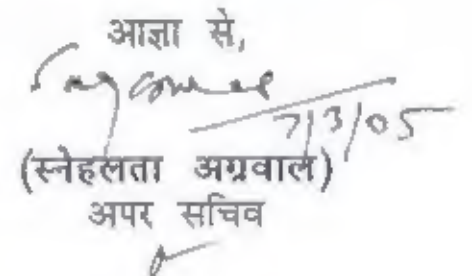 आज्ञा से,
7/3/05
(स्नेहलता अग्रवाल)
अपर सचिव